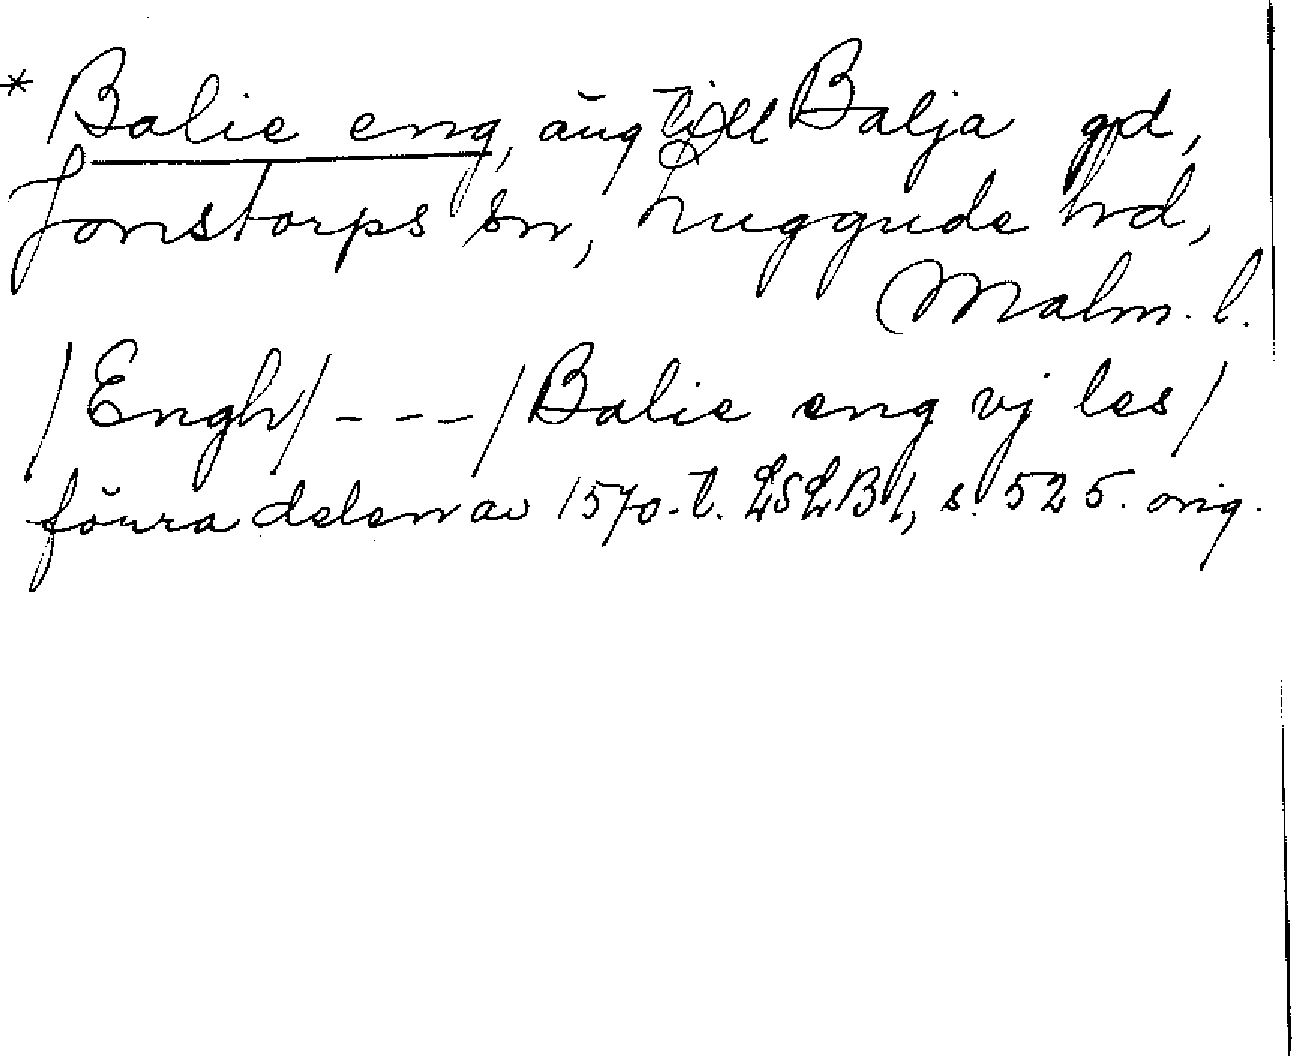 * Balie eng, äng till Balja gd,
Jonstorps sn, Luggude hd,
Malm. l.
/Engh/ - - - /Balie eng vj les/
förra delen av 1570-t. LSLB 1, s. 525. orig.